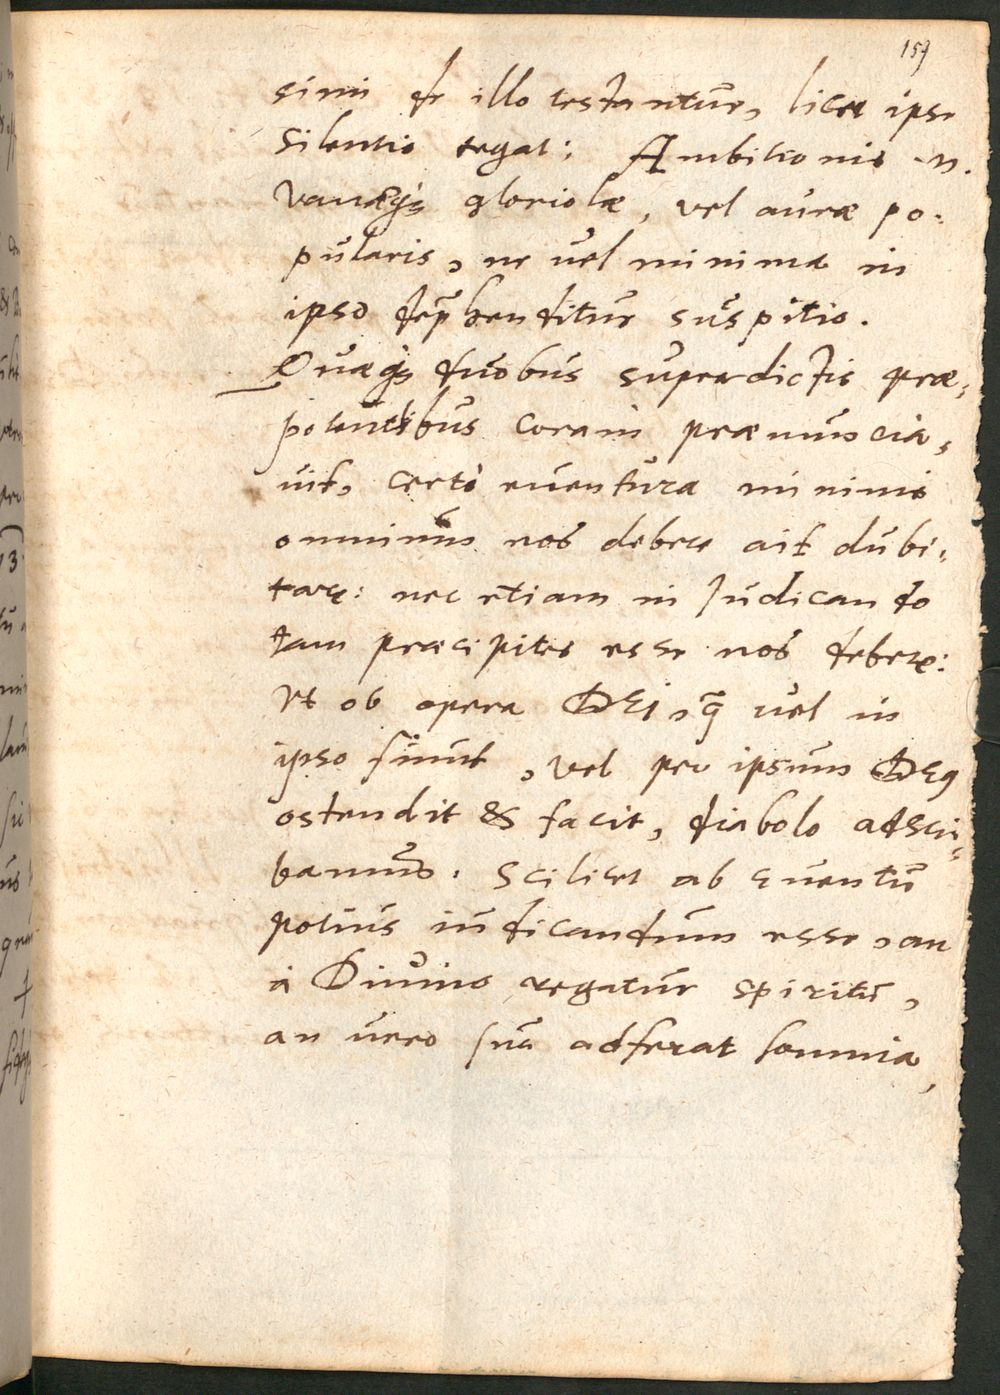 159
simi de illo testantur, licet ipse
silentio tegat: Ambitionis .n.
vanaeq; gloriolæ, vel auræ po:
pularis, ne vel minima in
ipso dep̃henditur suspitio.
Quæq; duobus supradictis præ,
potentibus coram prænuncia,
uit, certò euentura minime
omnium nos debere ait dubi,
tare: nec etiam in Iudicando
tam præcipites esse nos debere:
Vt ob opera DEI, q̃ vel in
ipso sunt, vel per ipsum DEꝰ
ostendit & facit, diabolo adscri,
bamus. Scilicet ab euentu
potius iudicandum esse, an
à Diuino regatur spiritu,
an uero sua adferat somnia,